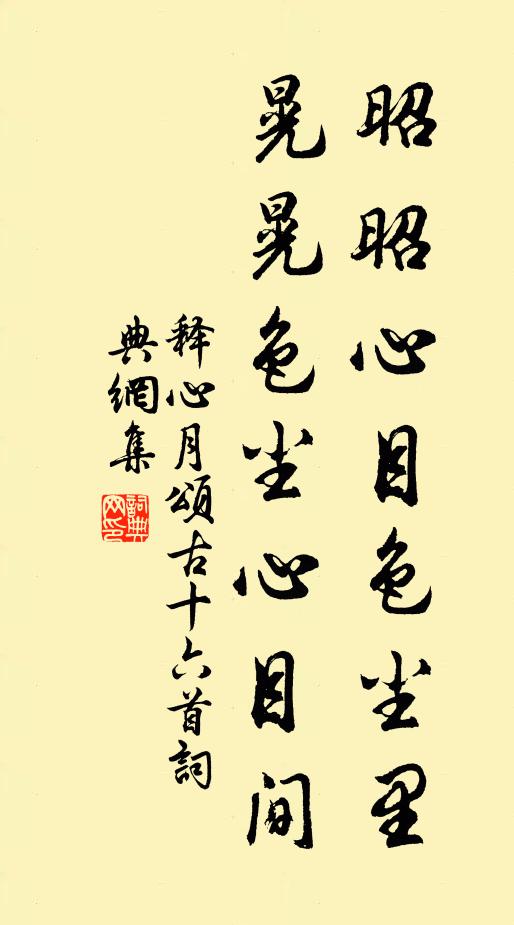 昭昭心目色尘里
晃晃色尘心目间
释心月頌古十六首詞
典網集
詞典网印